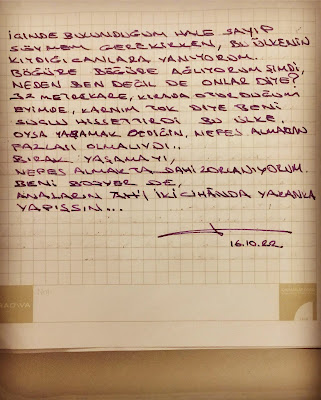 İÇİNDE BULUNDUĞUM HALE SAYIP
SEVMEM GEREKİRKEN, BU ÜLKENİN
KIYDIĞI CANLARA YANIYORUM.
BÖĞÜRE BÖĞÜRE AĞLIYORUM ŞİMDİ,
NEDEN BEN DEĞİL DE ONLAR DİYE?
32 METREKARE, KİRADA OTURDUĞUM
EVİMDE, KARNIM TOK DİYE BENİ
SUÇLU HİSSETTİRDİ BU ÜLKE.
OYSA YAŞAMAK DEDİĞİN, NEFES ALMANIN
FAZLASI OLMALIYDI..
BIRAK YAŞAMAYI,
NEFES ALMAKTA DAHİ ZORLANIYORUM.
BENİ BOŞVER DE,
ANALARIN AHI İKİ CİHANDA YAKANIZA
YAPIŞSIN...
16.10.22